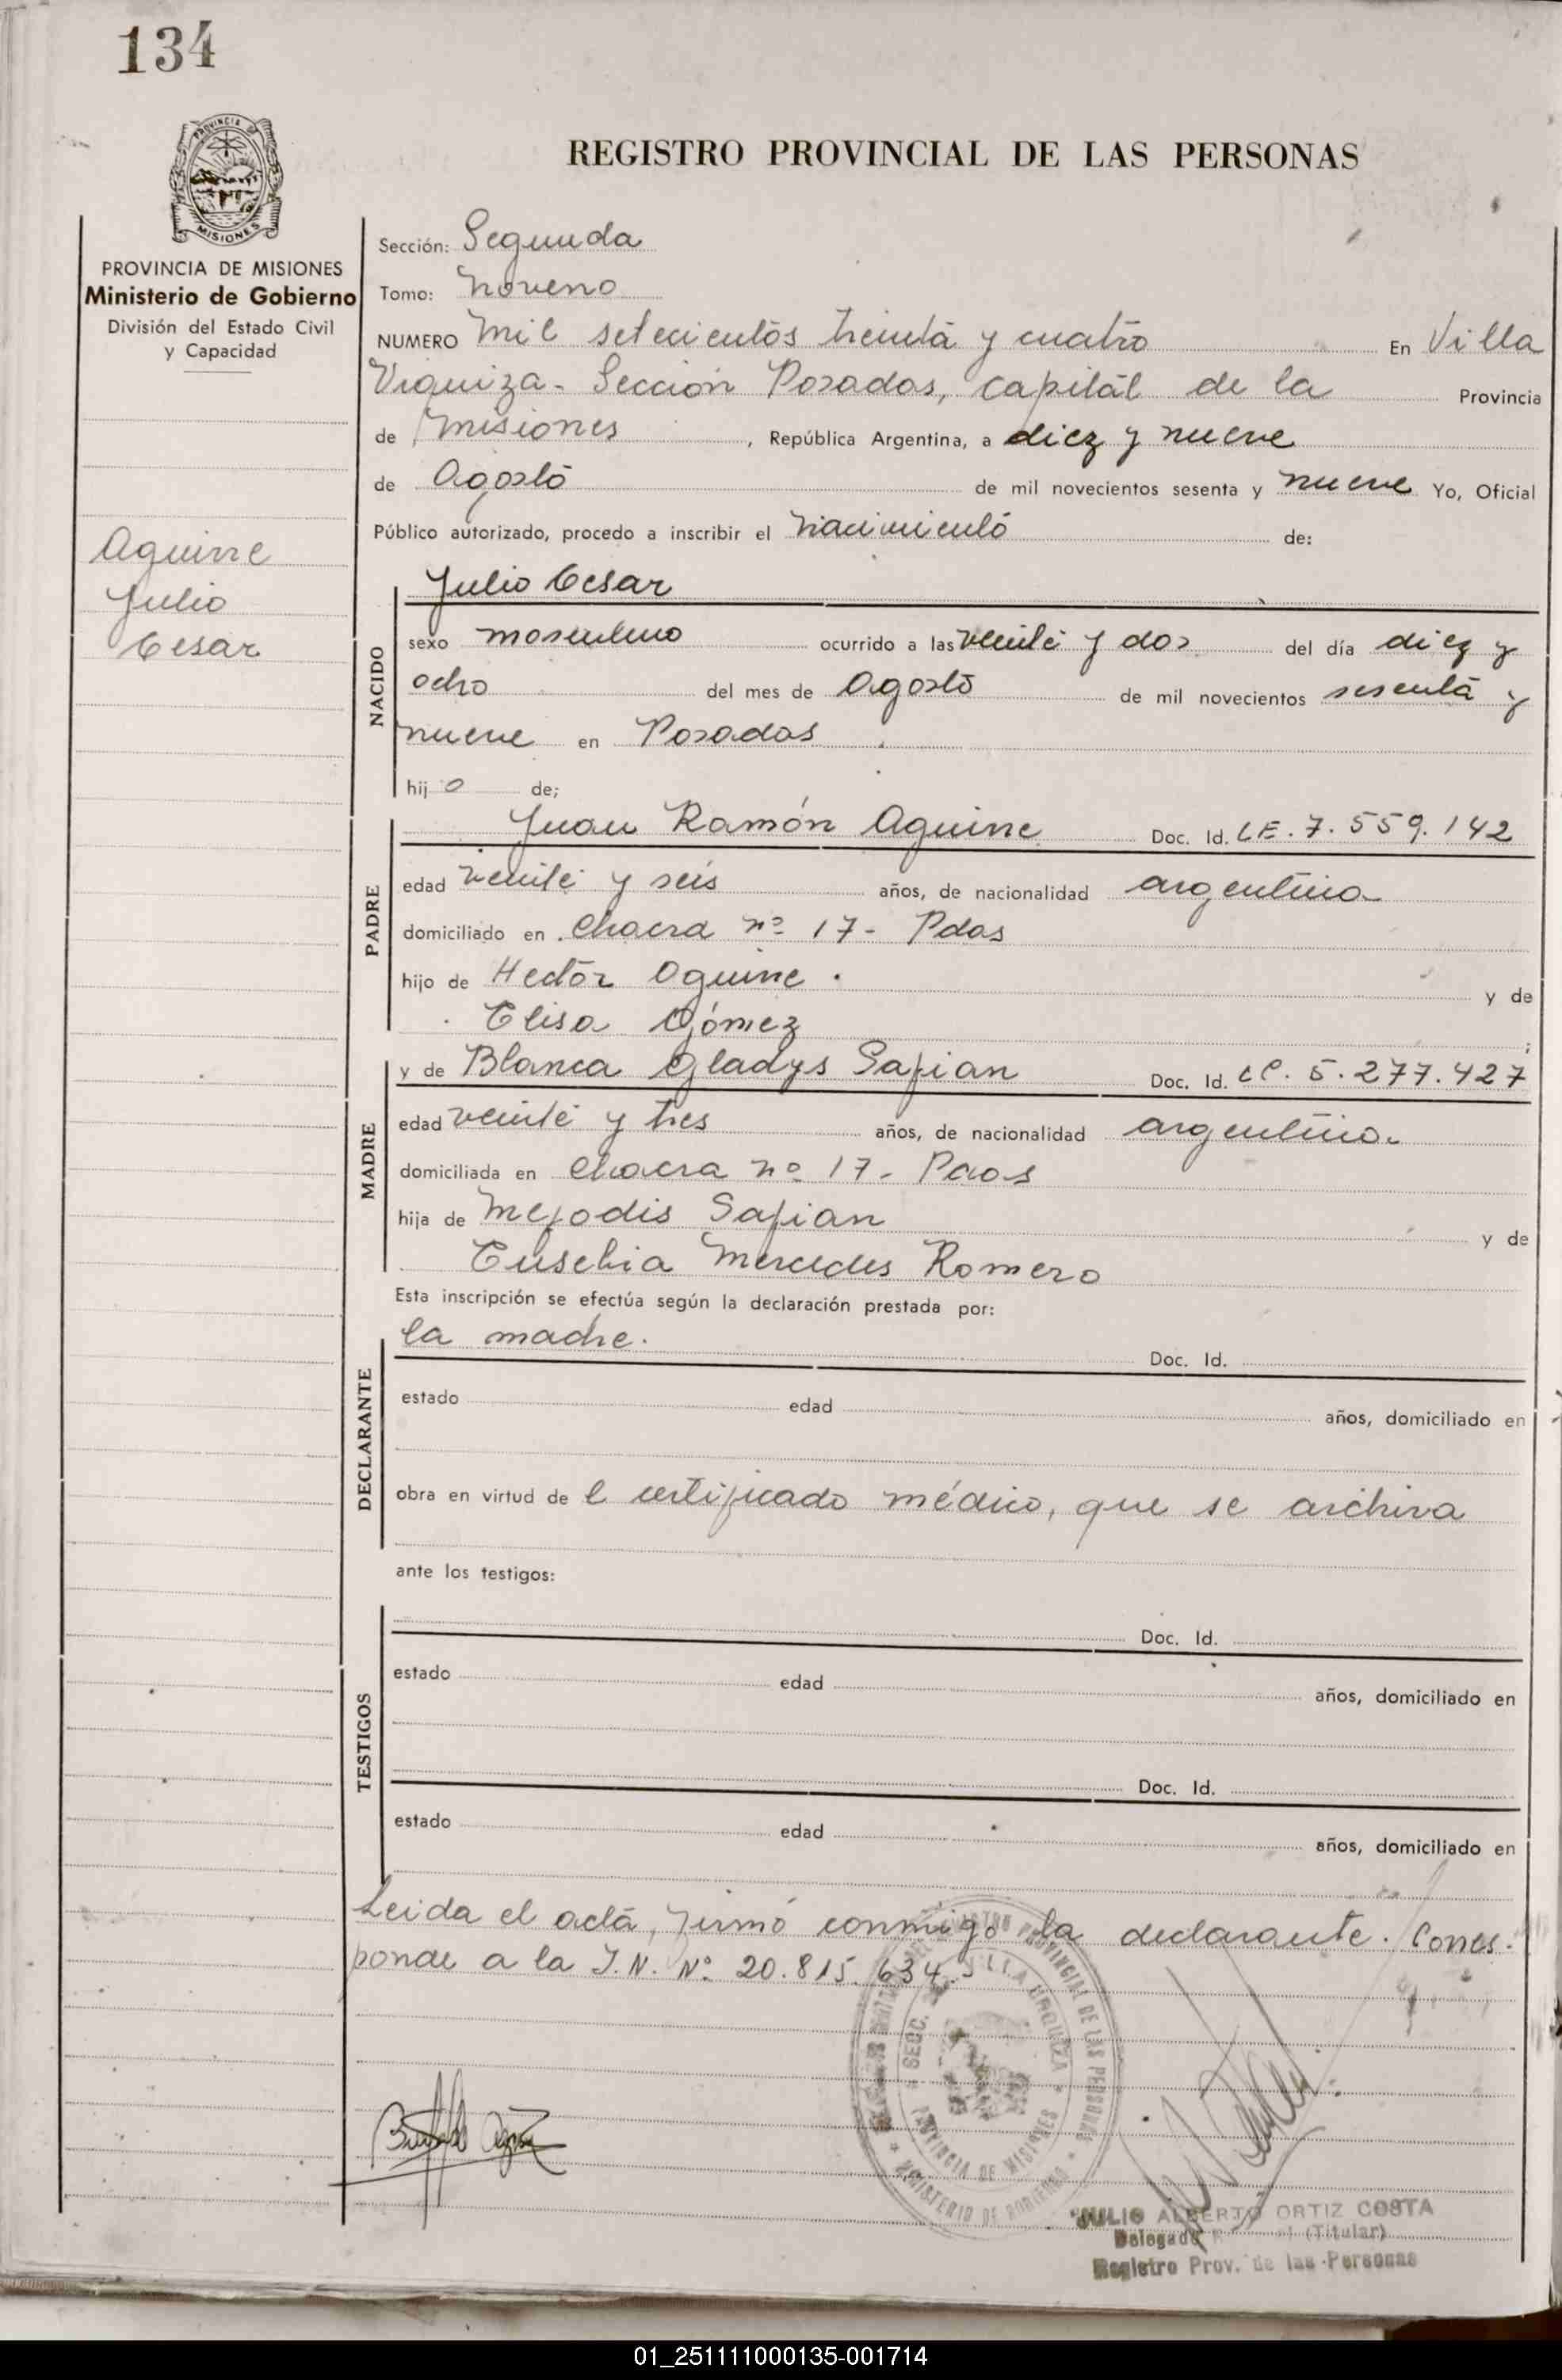 134
PROVINCIA DE
MISIONES
REGISTRO PROVINCIAL DE LAS PERSONAS
PROVINCIA DE MISIONES
Ministerio de Gobierno
División del Estado Civil
y Capacidad
Aguirre
Julio
Cesar
Sección: Segunda
Tomo: Noveno
NUMERO Mil setecientos treinta y cuatro En Villa
Urquiza - Sección Posadas, capital de la Provincia
de Misiones, República Argentina, a diez y nueve
de Agosto de mil novecientos sesenta y nueve Yo, Oficial
Público autorizado, procedo a inscribir el nacimiento de:
NACIDO
Julio Cesar
sexo masculino ocurrido a las veinte y dos del día diez y
ocho del mes de Agosto de mil novecientos sesenta y
nueve en Posadas
hijo de;
PADRE
Juan Ramón Aguirre Doc. Id. LE. 7.559.142
edad veinte y seis años, de nacionalidad argentina
domiciliado en Chacra nº 17 - Pdas
hijo de Hector Aguirre y de
Elisa Gómez;
MADRE
y de Blanca Gladys Safian Doc. Id. LC. 5.277.427
edad veinte y tres años, de nacionalidad argentina
domiciliada en Chacra nº 17 - Pdas
hija de Mefodis Safian y de
Eusebia Mercedes Romero
Esta inscripción se efectúa según la declaración prestada por:
DECLARANTE
la madre. Doc. Id.
estado edad años, domiciliado en
obra en virtud de l certificado médico, que se archiva
ante los testigos:
TESTIGOS
Doc. Id.
estado edad años, domiciliado en
Doc. Id.
estado edad años, domiciliado en
Leida el acta, firmó conmigo la declarante. Corres-
ponde a la I.N. Nº 20.815.634.-
REGISTRO PROVINCIAL DE LAS PERSONAS
MINISTERIO DE GOBIERNO
SECC. VILLA URQUIZA
PROVINCIA DE MISIONES
JULIO ALBERTO ORTIZ COSTA
Delegado (Titular)
Registro Prov. de las Personas
01_251111000135-001714